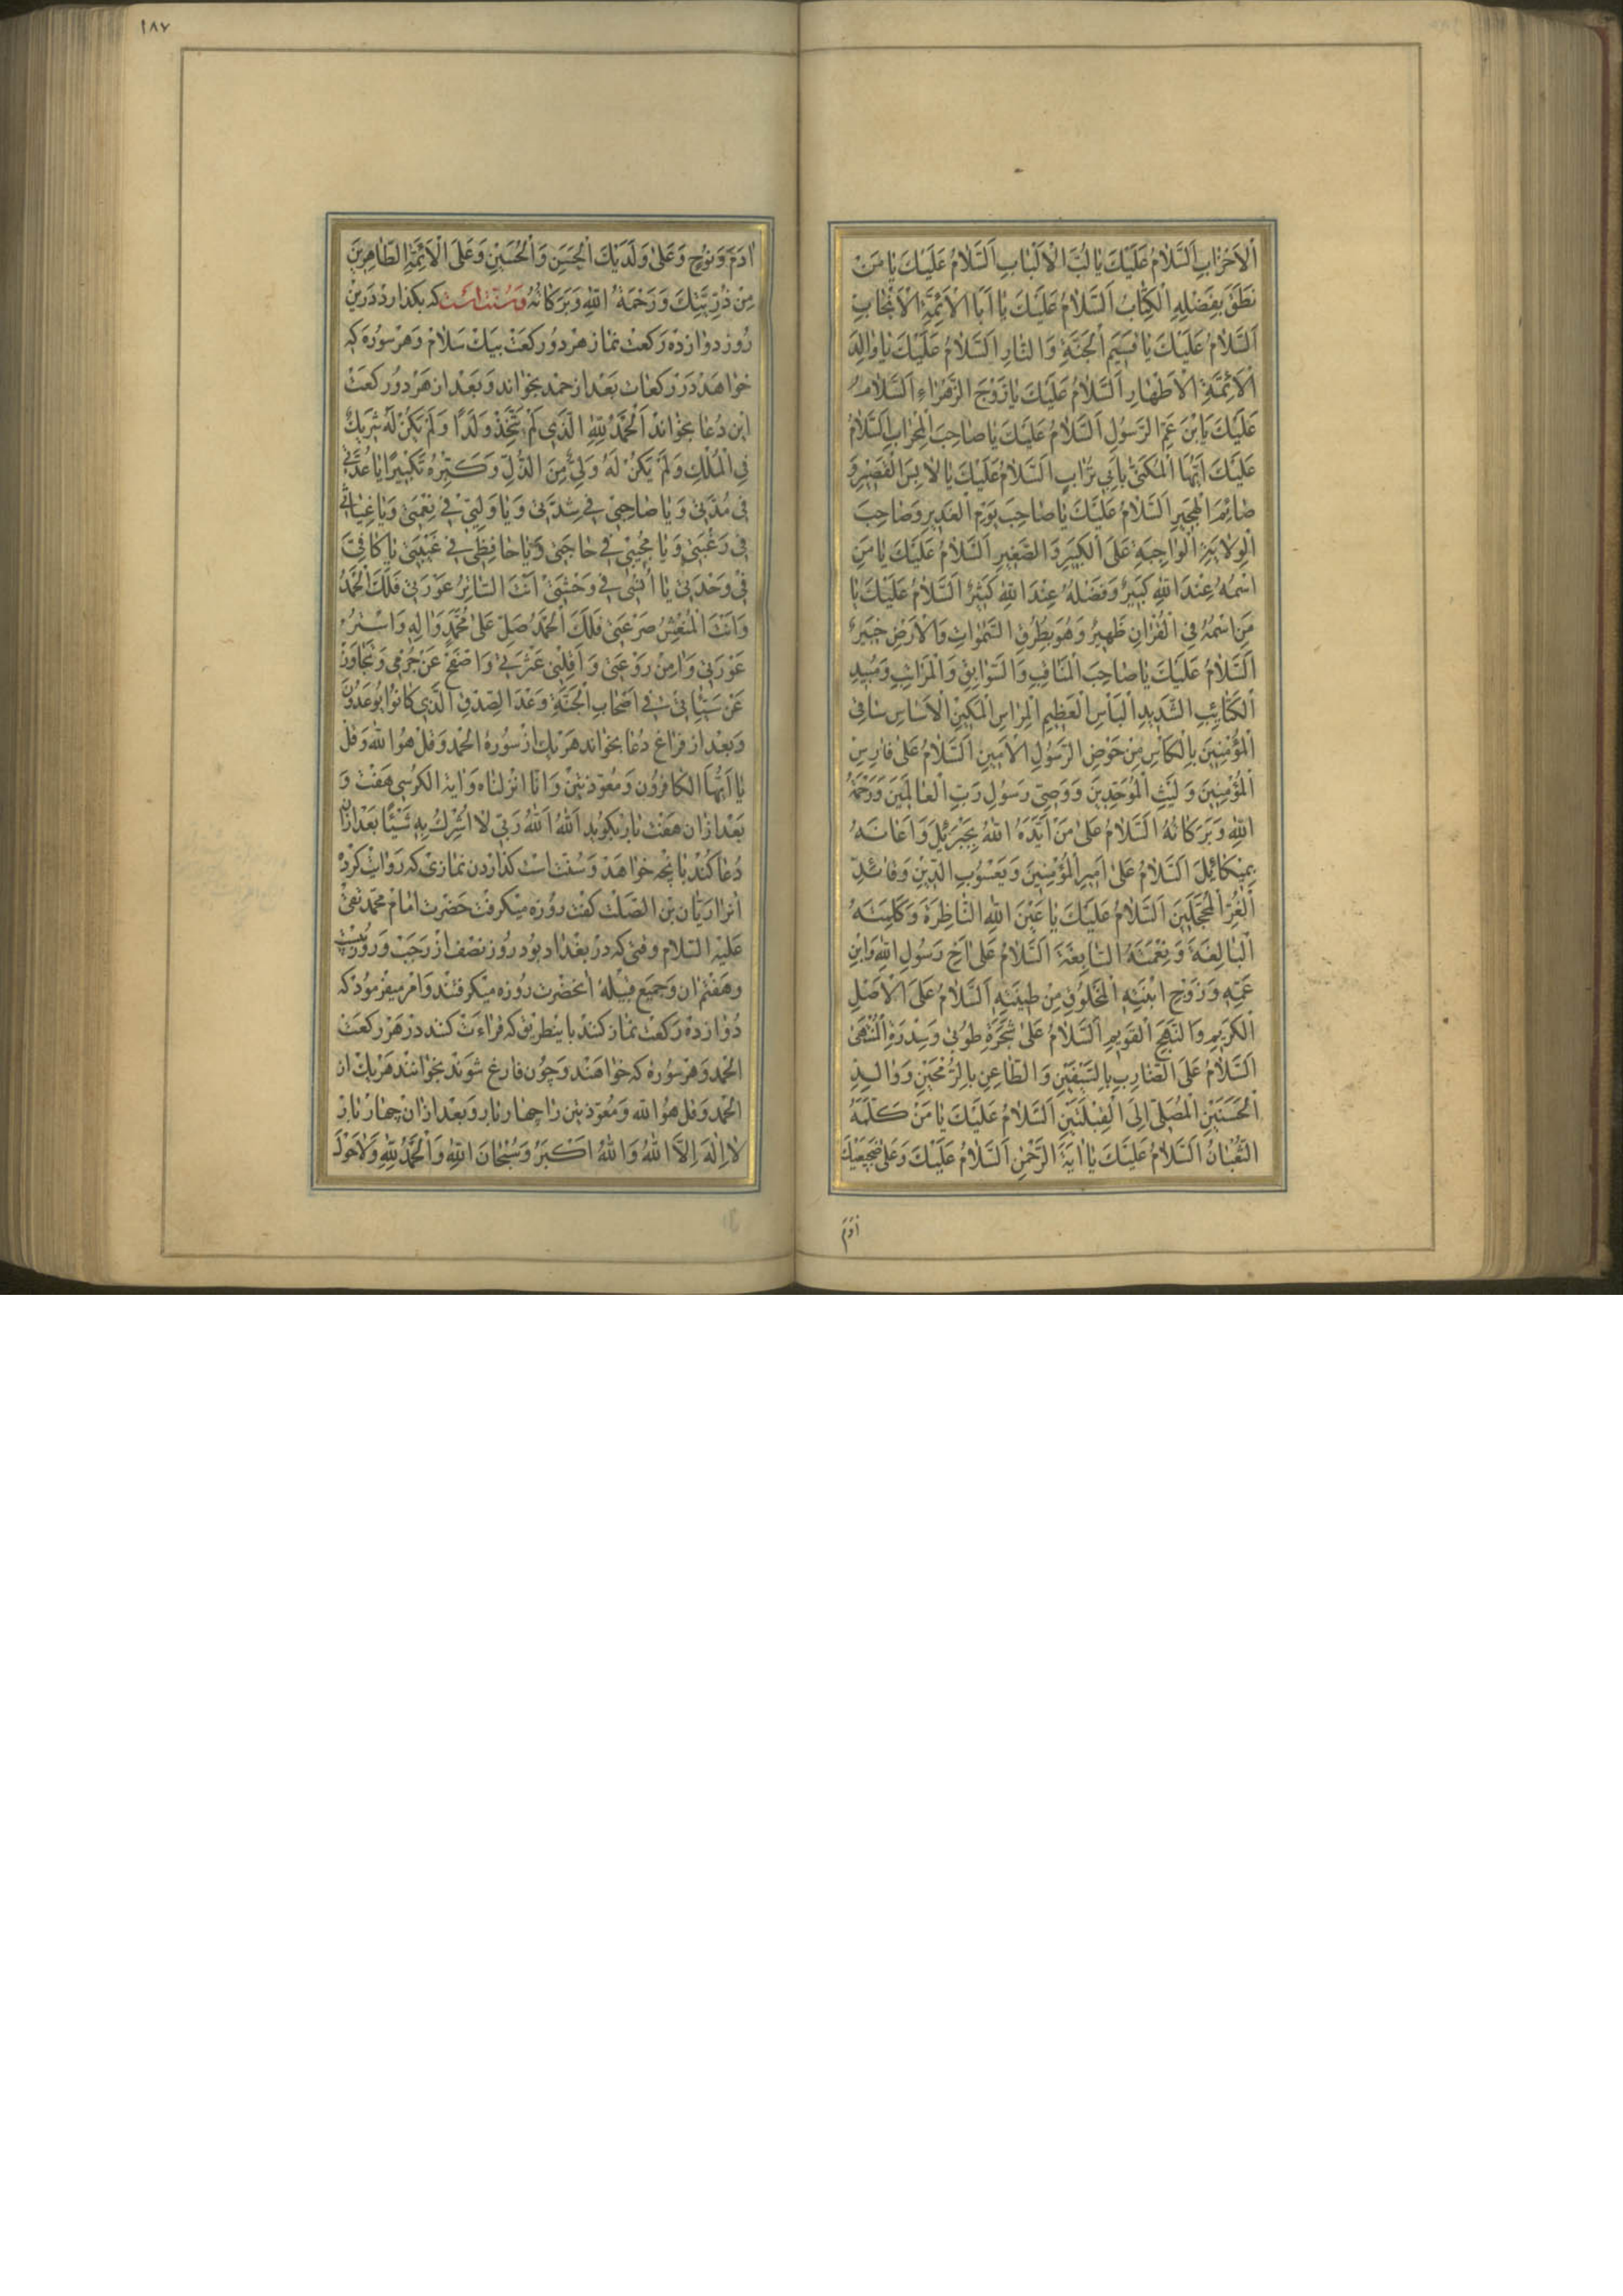 اَلْاَحْزٰابِ اَلسَّلٰامُ عَلَيْكَ يٰا لُبَّ الْاَلْبٰابِ اَلسَّلٰامُ عَلَيْكَ يٰا مَنْ
نَطَقَ بِفَضْلِهِ الْكِتٰابُ اَلسَّلٰامُ عَلَيْكَ يٰا اَبَا الْاَئِمَّةِ الْاَنْجٰابِ
اَلسَّلٰامُ عَلَيْكَ يٰا قَسِيمَ الْجَنَّةِ وَالنّٰارِ اَلسَّلٰامُ عَلَيْكَ يٰا وٰالِدَ
الْاَئِمَّةِ الْاَطْهٰارِ اَلسَّلٰامُ عَلَيْكَ يٰا زَوْجَ الزَّهْرٰاءِ اَلسَّلٰامُ
عَلَيْكَ يَا ابْنَ عَمِّ الرَّسُولِ اَلسَّلٰامُ عَلَيْكَ يٰا صٰاحِبَ الْمِحْرٰابِ اَلسَّلٰامُ
عَلَيْكَ اَيُّهَا الْمُكَنّٰى بِاَبِي تُرٰابٍ اَلسَّلٰامُ عَلَيْكَ يٰا لٰابِسَ الْقَصِيرِ وَ
صٰائِمَ الْهَجِيرِ اَلسَّلٰامُ عَلَيْكَ يٰا صٰاحِبَ يَوْمِ الْغَدِيرِ وَصٰاحِبَ
الْوِلٰايَةِ الْوٰاجِبَةِ عَلَى الْكَبِيرِ وَالصَّغِيرِ اَلسَّلٰامُ عَلَيْكَ يٰا مَنِ
اسْمُهُ عِنْدَ اللهِ كَبِيرٌ وَفَضْلُهُ عِنْدَ اللهِ كَثِيرٌ اَلسَّلٰامُ عَلَيْكَ يٰا
مَنِ اسْمُهُ فِي الْقُرْاٰنِ ظَهِيرٌ وَهُوَ بِطُرُقِ السَّمٰوٰاتِ وَالْاَرْضِ خَبِيرٌ
اَلسَّلٰامُ عَلَيْكَ يٰا صٰاحِبَ الْمَنٰاقِبِ وَالسَّوٰابِقِ وَالْمَرٰاتِبِ وَمُبِيدِ
الْكَتٰائِبِ الشَّدِيدِ الْبَأْسِ الْعَظِيمِ الْمِرٰاسِ الْمَكِينِ الْاَسٰاسِ سٰاقِي
الْمُؤْمِنِينَ بِالْكَأْسِ مِنْ حَوْضِ الرَّسُولِ الْاَمِينِ اَلسَّلٰامُ عَلٰى فٰارِسِ
الْمُؤْمِنِينَ وَلَيْثِ الْمُوَحِّدِينَ وَوَصِيِّ رَسُولِ رَبِّ الْعٰالَمِينَ وَرَحْمَةُ
اللهِ وَبَرَكٰاتُهُ اَلسَّلٰامُ عَلٰى مَنْ اَيَّدَهُ اللهُ بِجَبْرَئِيلَ وَاَعٰانَهُ
بِمِيكٰائِيلَ اَلسَّلٰامُ عَلٰى اَمِيرِ الْمُؤْمِنِينَ وَيَعْسُوبِ الدِّينِ وَقٰائِدِ
الْغُرِّ الْمُحَجَّلِينَ اَلسَّلٰامُ عَلَيْكَ يٰا عَيْنَ اللهِ النّٰاظِرَةَ وَكَلِمَتَهُ
الْبٰالِغَةَ وَنِعْمَتَهُ السّٰابِغَةَ اَلسَّلٰامُ عَلٰى اَخِ رَسُولِ اللهِ وَابْنِ
عَمِّهِ وَزَوْجِ ابْنَتِهِ الْمَخْلُوقِ مِنْ طِينَتِهِ اَلسَّلٰامُ عَلَى الْاَصْلِ
الْكَرِيمِ وَالنَّهْجِ الْقَوِيمِ اَلسَّلٰامُ عَلٰى شَجَرَةِ طُوبٰى وَسِدْرَةِ الْمُنْتَهٰى
اَلسَّلٰامُ عَلَى الضّٰارِبِ بِالسَّيْفَيْنِ وَالطّٰاعِنِ بِالرُّمْحَيْنِ وَوٰالِدِ
الْحَسَنَيْنِ الْمُصَلِّي اِلَى الْقِبْلَتَيْنِ اَلسَّلٰامُ عَلَيْكَ يٰا مَنْ كَلَّمَهُ
الثُّعْبٰانُ اَلسَّلٰامُ عَلَيْكَ يٰا اٰيَةَ الرَّحْمٰنِ اَلسَّلٰامُ عَلَيْكَ وَعَلٰى ضَجِيعَيْكَ
اٰدَمَ
١٨٧
اٰدَمَ وَنُوحٍ وَعَلٰى وَلَدَيْكَ الْحَسَنِ وَالْحُسَيْنِ وَعَلَى الْاَئِمَّةِ الطّٰاهِرِينَ
مِنْ ذُرِّيَّتِكَ وَرَحْمَةُ اللهِ وَبَرَكٰاتُهُ وَسُنّت است كه بكذارد درين
روز دوازده ركعت نماز هر دو ركعت بيك سلام وهر سوره كه
خواهد در ركعات بعد از حمد بخواند وبعد از هر دو ركعت
اين دعا بخواند اَلْحَمْدُ لِلّٰهِ الَّذِي لَمْ يَتَّخِذْ وَلَدًا وَلَمْ يَكُنْ لَهُ شَرِيكٌ
فِي الْمُلْكِ وَلَمْ يَكُنْ لَهُ وَلِيٌّ مِنَ الذُّلِّ وَكَبِّرْهُ تَكْبِيرًا يٰا عُدَّتِي
فِي مُدَّتِي وَيٰا صٰاحِبِي فِي شِدَّتِي وَيٰا وَلِيِّي فِي نِعْمَتِي وَيٰا غِيٰاثِي
فِي رَغْبَتِي وَيٰا مُجِيبِي فِي حٰاجَتِي وَيٰا حٰافِظِي فِي غَيْبَتِي يٰا كٰافِيَّ
فِي وَحْدَتِي يٰا اُنْسِي فِي وَحْشَتِي اَنْتَ السّٰاتِرُ عَوْرَتِي فَلَكَ الْحَمْدُ
وَاَنْتَ الْمُنْعِشُ صَرْعَتِي فَلَكَ الْحَمْدُ صَلِّ عَلٰى مُحَمَّدٍ وَاٰلِهِ وَاسْتُرْ
عَوْرَتِي وَاٰمِنْ رَوْعَتِي وَاَقِلْنِي عَثْرَتِي وَاصْفَحْ عَنْ جُرْمِي وَتَجٰاوَزْ
عَنْ سَيِّئٰاتِي فِي اَصْحٰابِ الْجَنَّةِ وَعْدَ الصِّدْقِ الَّذِي كٰانُوا يُوعَدُونَ
وبعد از فراغ دعا بخواند هريك از سورهٔ الحمد وقل هو الله وقل
يا ايها الكافرون ومعوّذتين وانا انزلناه واية الكرسى هفت و
بعد ازان هفت بار بكويد اَللهُ اَللهُ رَبِّي لٰا اُشْرِكُ بِهِ شَيْئًا بعد ازان
دعا كند بانچه خواهد وسنت است كذاردن نمازى كه روايت كرد
انرا ريّان بن الصلت كفت روزه ميكرفت حضرت امام محمد تقى
عليه السلام وقتى كه در بغداد بود روز نصف از رجب وروز بيست
وهفتم ان وجميع قبيلهٔ انحضرت روزه ميكرفتند وامر ميفرمود كه
دوازده ركعت نماز كنند باينطريق كه قراءت كنند در هر ركعت
الحمد وهر سورهٔ كه خواهند وچون فارغ شوند بخوانند هريك از
الحمد وقل هو الله ومعوّذتين را چهار بار وبعد ازان چهار بار
لٰا اِلٰهَ اِلَّا اللهُ وَاللهُ اَكْبَرُ وَسُبْحٰانَ اللهِ وَالْحَمْدُ لِلّٰهِ وَلٰا حَوْلَ